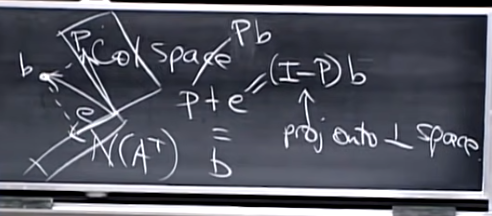 P Col space Pb
b
P + e = (I-P) b
e
N(Aᵀ) = b
proj onto ⊥ space